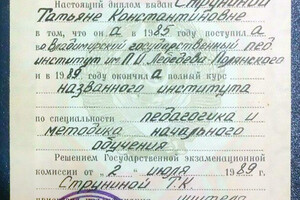 Настоящий диплом выдан Струниной
Татьяне Константиновне
в том, что он а в 1985 году поступил а
во Владимирский государственный пед.
институт им. П.И. Лебедева-Полянского
и в 1989 году окончил а полный курс
названного института
по специальности педагогика и
методика начального
обучения
Решением Государственной экзаменационной
комиссии от „2" июля 1989 г.
Струниной Т.К.
учителя